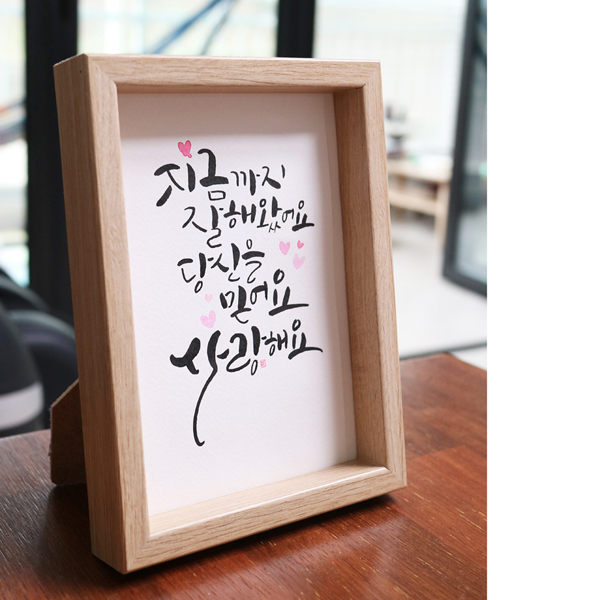 지금까지
잘해왔어요
당신을
믿어요
사랑해요